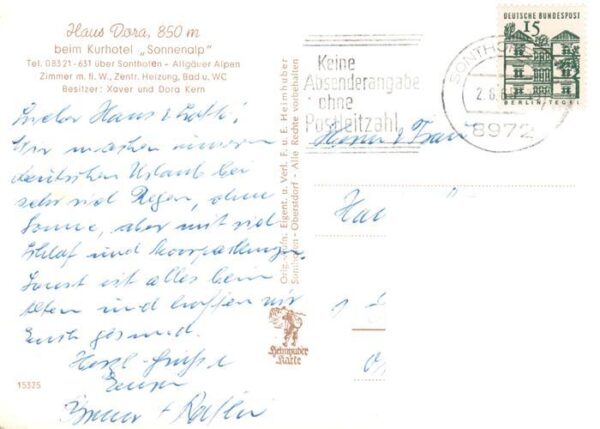 Haus Dora, 850 m
beim Kurhotel „Sonnenalp"
Tel. 08321-631 über Sonthofen - Allgäuer Alpen
Zimmer m. fl. W., Zentr. Heizung, Bad u. WC
Besitzer: Xaver und Dora Kern
Hans &
Wir machen unseren
deutschen Urlaub bei
sehr viel Regen, ohne
Sonne, aber mit viel
Schlaf und
Sonst ist alles beim
Alten und hoffen wir
Euch gesund.
Herzl. Grüße
Eure
15325
Orig.-Afn. Eigent. u. Verl. F. u. E. Heimhuber
Sonthofen - Oberstdorf - Alle Rechte vorbehalten
Heimhuber
Karte
Keine
Absenderangabe
ohne
Postleitzahl
DEUTSCHE BUNDESPOST
15
BERLIN/TEGEL
SONTHOF
8972
Herrn & Frau